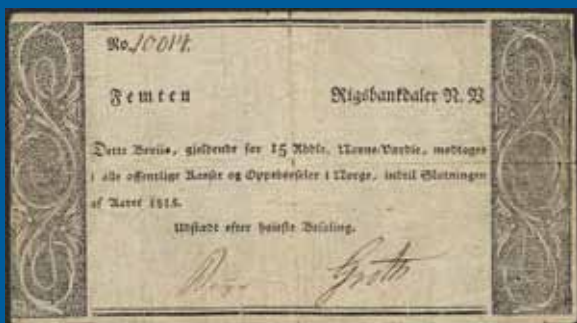 No.
Femten Rigsbankdaler N. V.
Dette Beviis, gjeldende for 15 Rbdlr. Navne-Værdie, modtages
i alle offentlige Kasser og Oppebørseler i Norge, indtil Slutningen
af Aaret
Udstædt efter høieste Befaling.
Groth